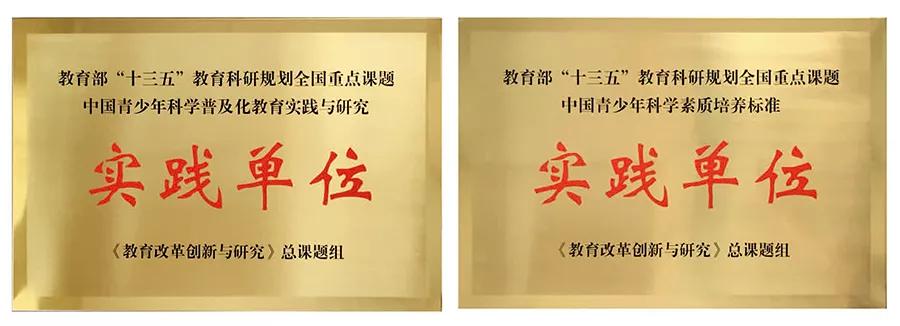 教育部“十三五”教育科研规划全国重点课题
中国青少年科学普及化教育实践与研究
实践单位
《教育改革创新与研究》总课题组
教育部“十三五”教育科研规划全国重点课题
中国青少年科学素质培养标准
实践单位
《教育改革创新与研究》总课题组